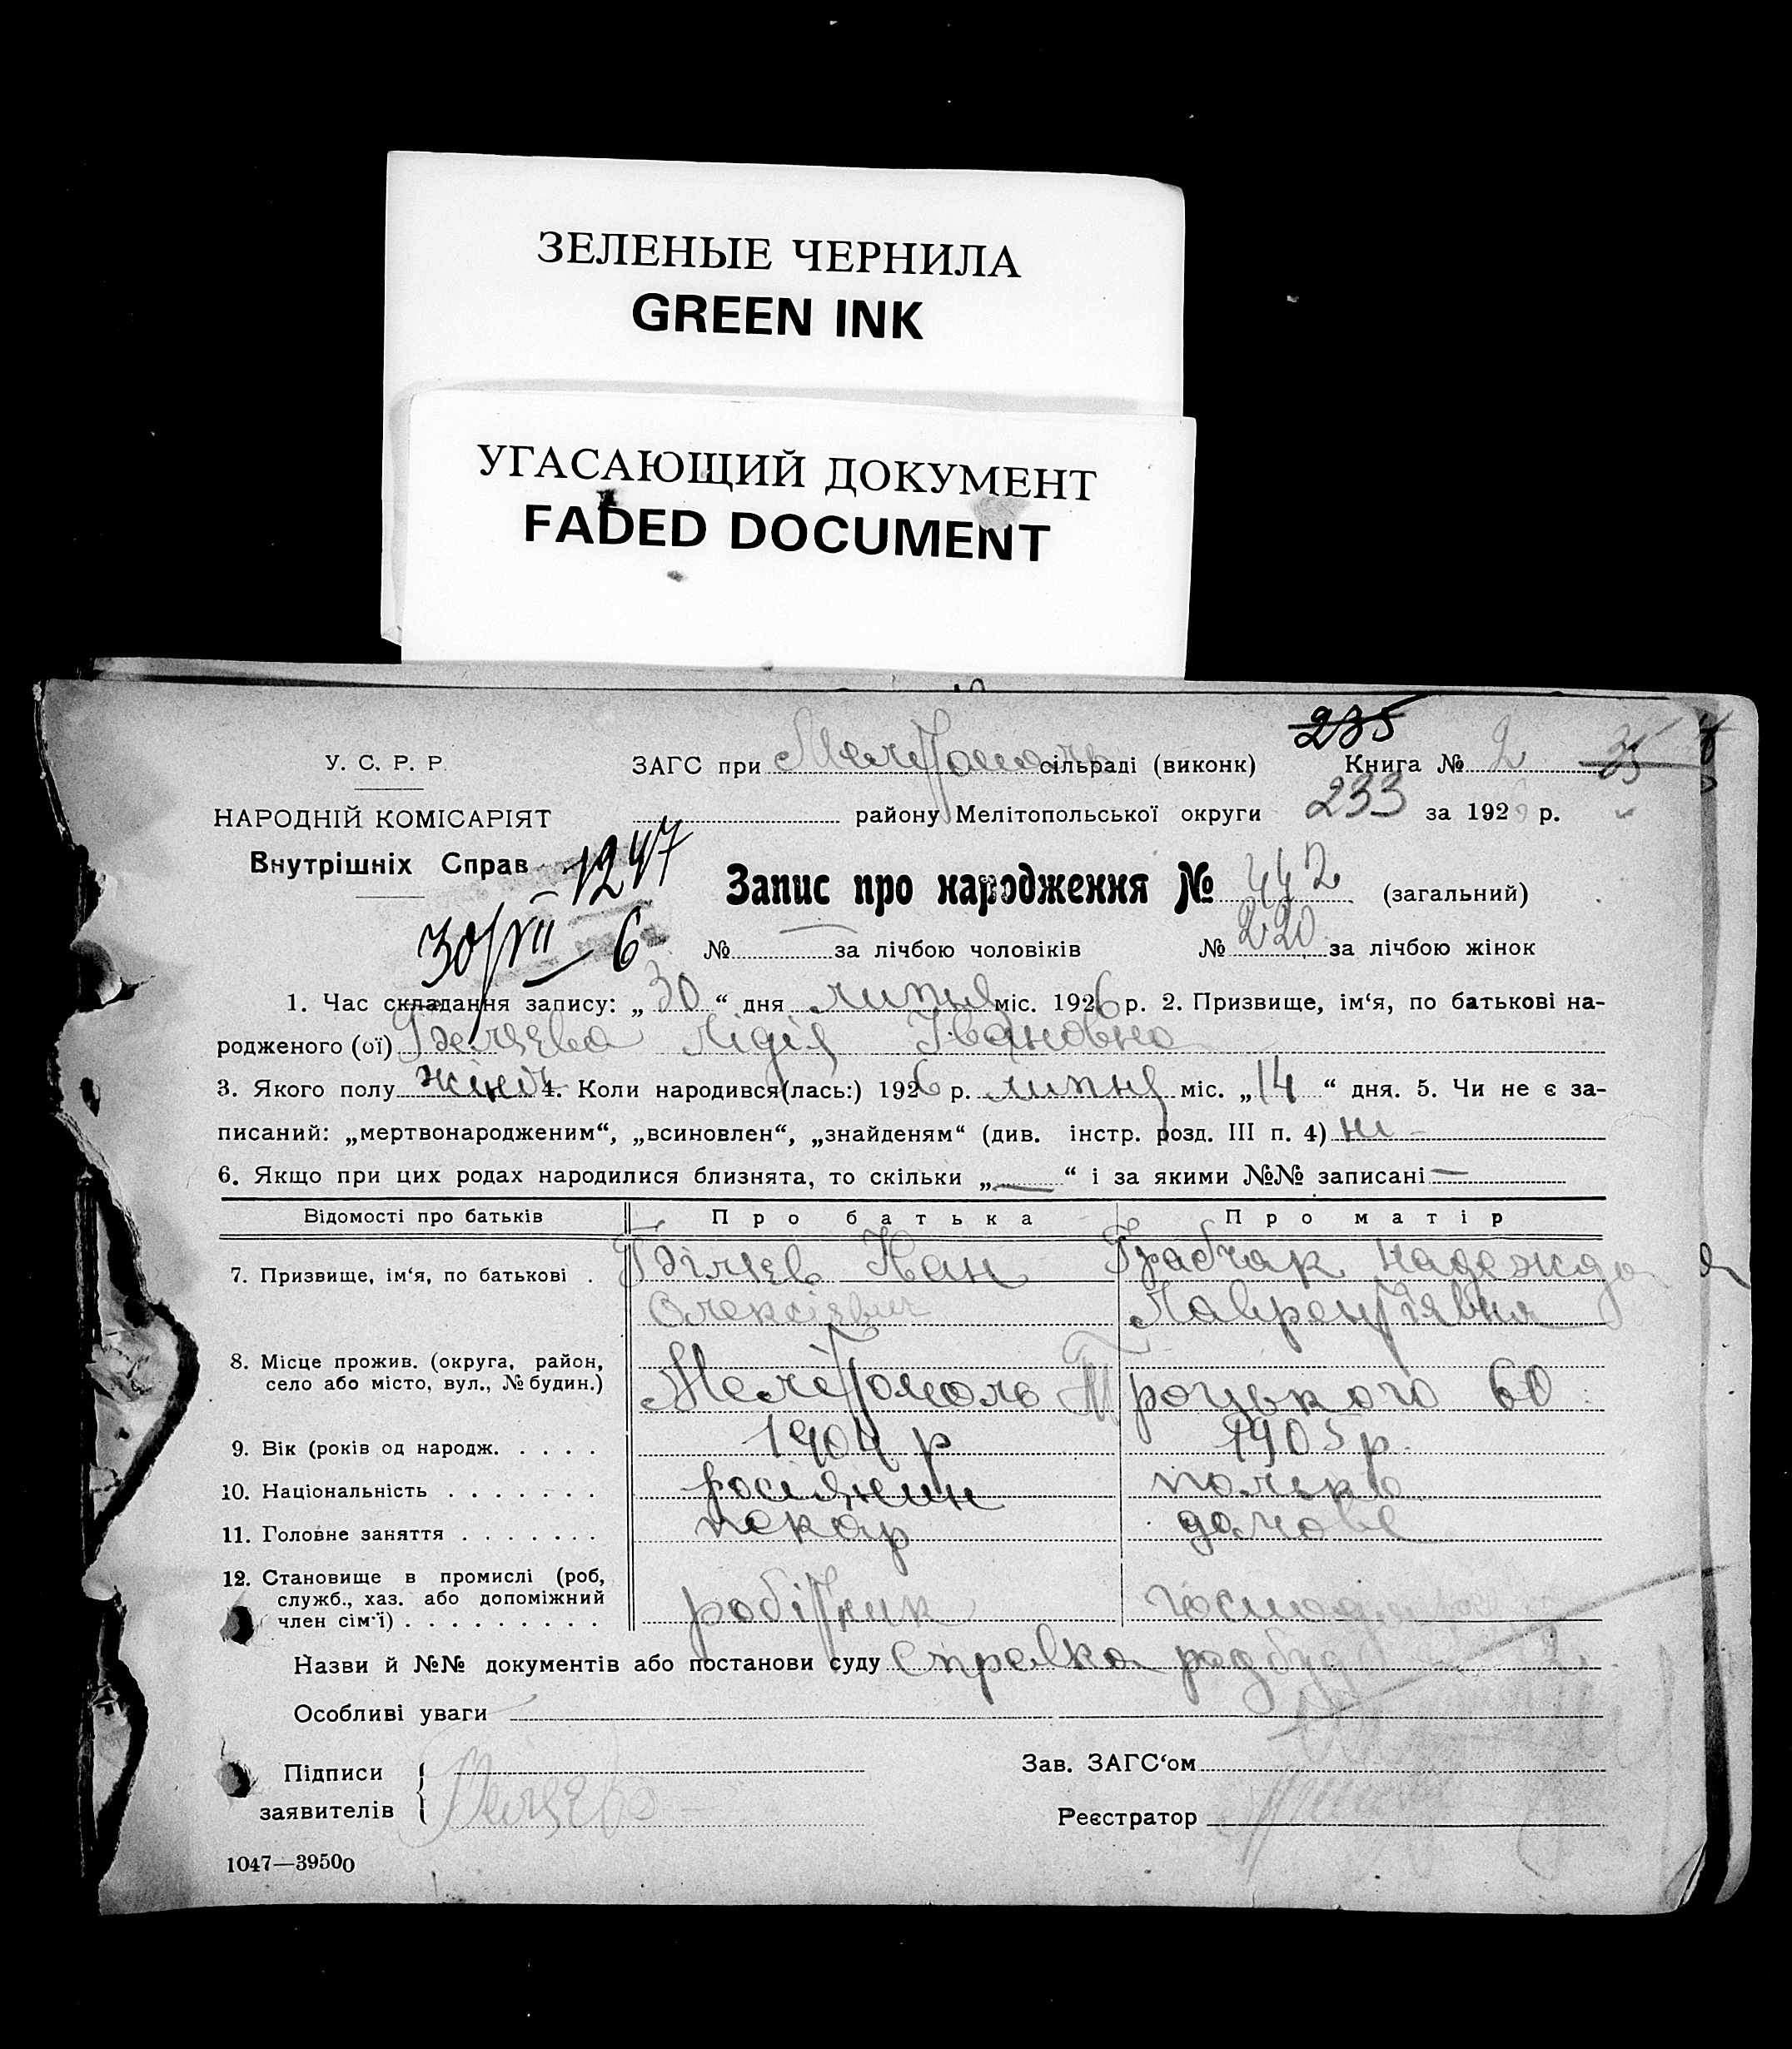 ЗЕЛЕНЫЕ ЧЕРНИЛА
GREEN INK
УГАСАЮЩИЙ ДОКУМЕНТ
FADED DOCUMENT
235
У. С. Р. Р.
ЗАГС при Мелітополь сільраді (виконк) Книга № 2 35
НАРОДНІЙ КОМІСАРІЯТ
району Мелітопольської округи 233 за 1926 р.
Внутрішніх Справ
1247
Запис про народження № 442 (загальний)
30/VII 6
№ — за лічбою чоловіків № 220 за лічбою жінок
1. Час складання запису: „30“ дня липня міс. 1926 р. 2. Призвище, ім‘я, по батькові на-
родженого (ої) Белцева Лідія Івановна
3. Якого полу жіноч 4. Коли народився(лась:) 1926 р. липня міс. „14“ дня. 5. Чи не є за-
писаний: „мертвонародженим“, „всиновлен“, „знайденям“ (див. інстр. розд. III п. 4) ні -
6. Якщо при цих родах народилися близнята, то скільки „—“ і за якими №№ записані —
Відомості про батьків Про батька Про матір
7. Призвище, ім‘я, по батькові . Білцев Іван Грабчак Надежда
Олексієвич Лаврентіявня
8. Місце прожив. (округа, район,
село або місто, вул., № будин.) Мелітополь Троцького 60
9. Вік (років од народж. . . . . 1904 р 1905 р.
10. Національність . . . . . . . росіянин полька
11. Головне заняття . . . . . . . пекар домове
12. Становище в промислі (роб,
служб., хаз. або допоміжний
член сім‘ї) . . . . . . . . . робітник
Назви й №№ документів або постанови суду Справка
Особливі уваги
Підписи
заявителів
Зав. ЗАГС‘ом
Реєстратор
1047—39500